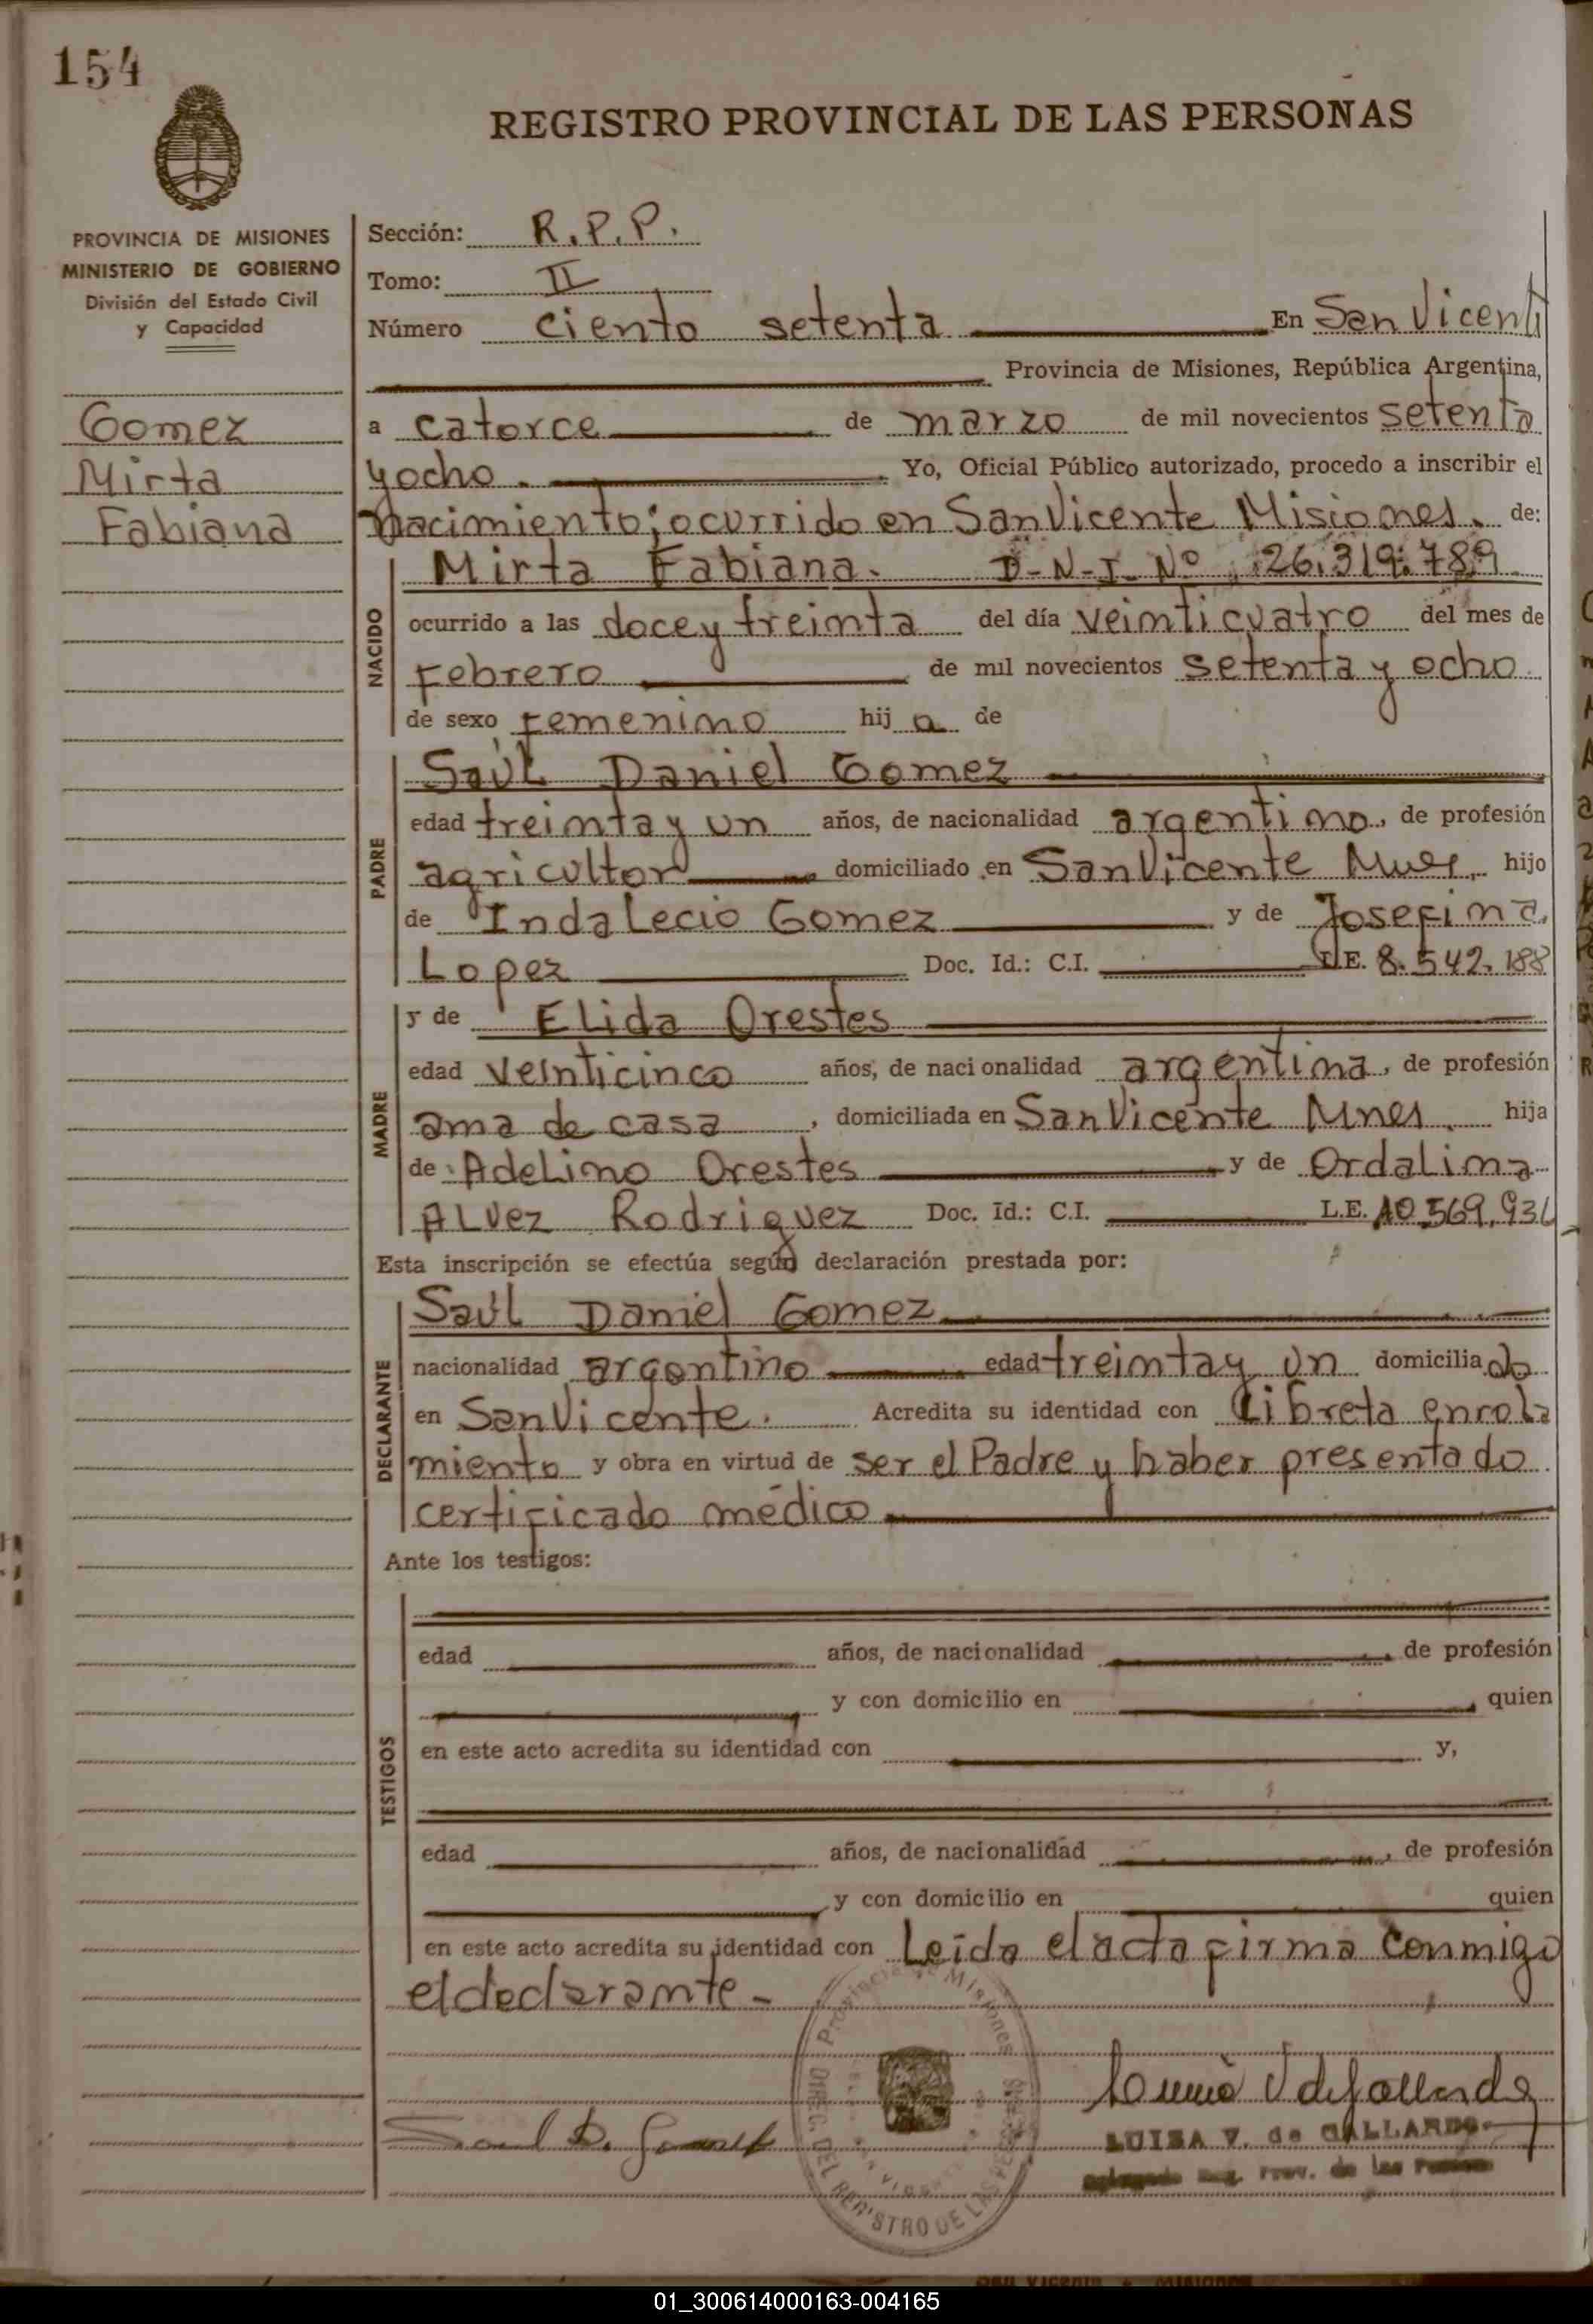 154
REGISTRO PROVINCIAL DE LAS PERSONAS
PROVINCIA DE MISIONES
MINISTERIO DE GOBIERNO
División del Estado Civil
y Capacidad
Gomez
Mirta
Fabiana
Sección: R.P.P.
Tomo: II
Número ciento setenta En San Vicente
Provincia de Misiones, República Argentina,
a catorce de marzo de mil novecientos setenta
y ocho. Yo, Oficial Público autorizado, procedo a inscribir el
nacimiento; ocurrido en San Vicente Misiones. de:
NACIDO
Mirta Fabiana. D-N-I- Nº 26.319.789
ocurrido a las doce y treinta del día veinticuatro del mes de
febrero de mil novecientos setenta y ocho.
de sexo femenino hija de
PADRE
Saúl Daniel Gomez
edad treinta y un años, de nacionalidad argentino, de profesión
agricultor domiciliado en San Vicente Mnes, hijo
de Indalecio Gomez y de Josefina
Lopez Doc. Id.: C.I. L.E. 8.542.188
MADRE
y de Elida Orestes
edad veinticinco años, de nacionalidad argentina, de profesión
ama de casa, domiciliada en San Vicente Mnes. hija
de Adelino Orestes y de Ordalina
Alvez Rodriguez Doc. Id.: C.I. L.E.
Esta inscripción se efectúa según declaración prestada por:
DECLARANTE
Saúl Daniel Gomez
nacionalidad argentino edad treinta y un domiciliado
en San Vicente. Acredita su identidad con Libreta enrola
miento y obra en virtud de ser el Padre y haber presentado
certificado médico
Ante los testigos:
TESTIGOS
edad años, de nacionalidad , de profesión
y con domicilio en , quien
en este acto acredita su identidad con y,
edad años, de nacionalidad , de profesión
y con domicilio en quien
en este acto acredita su identidad con Leída el acta firma conmigo
el declarante -
Provincia de Misiones
DIREC. DEL REGISTRO DE LAS PERSONAS
Saul D. Gomez
LUISA V. de GALLARDO
Reg. Prov. de las Personas
01_300614000163-004165